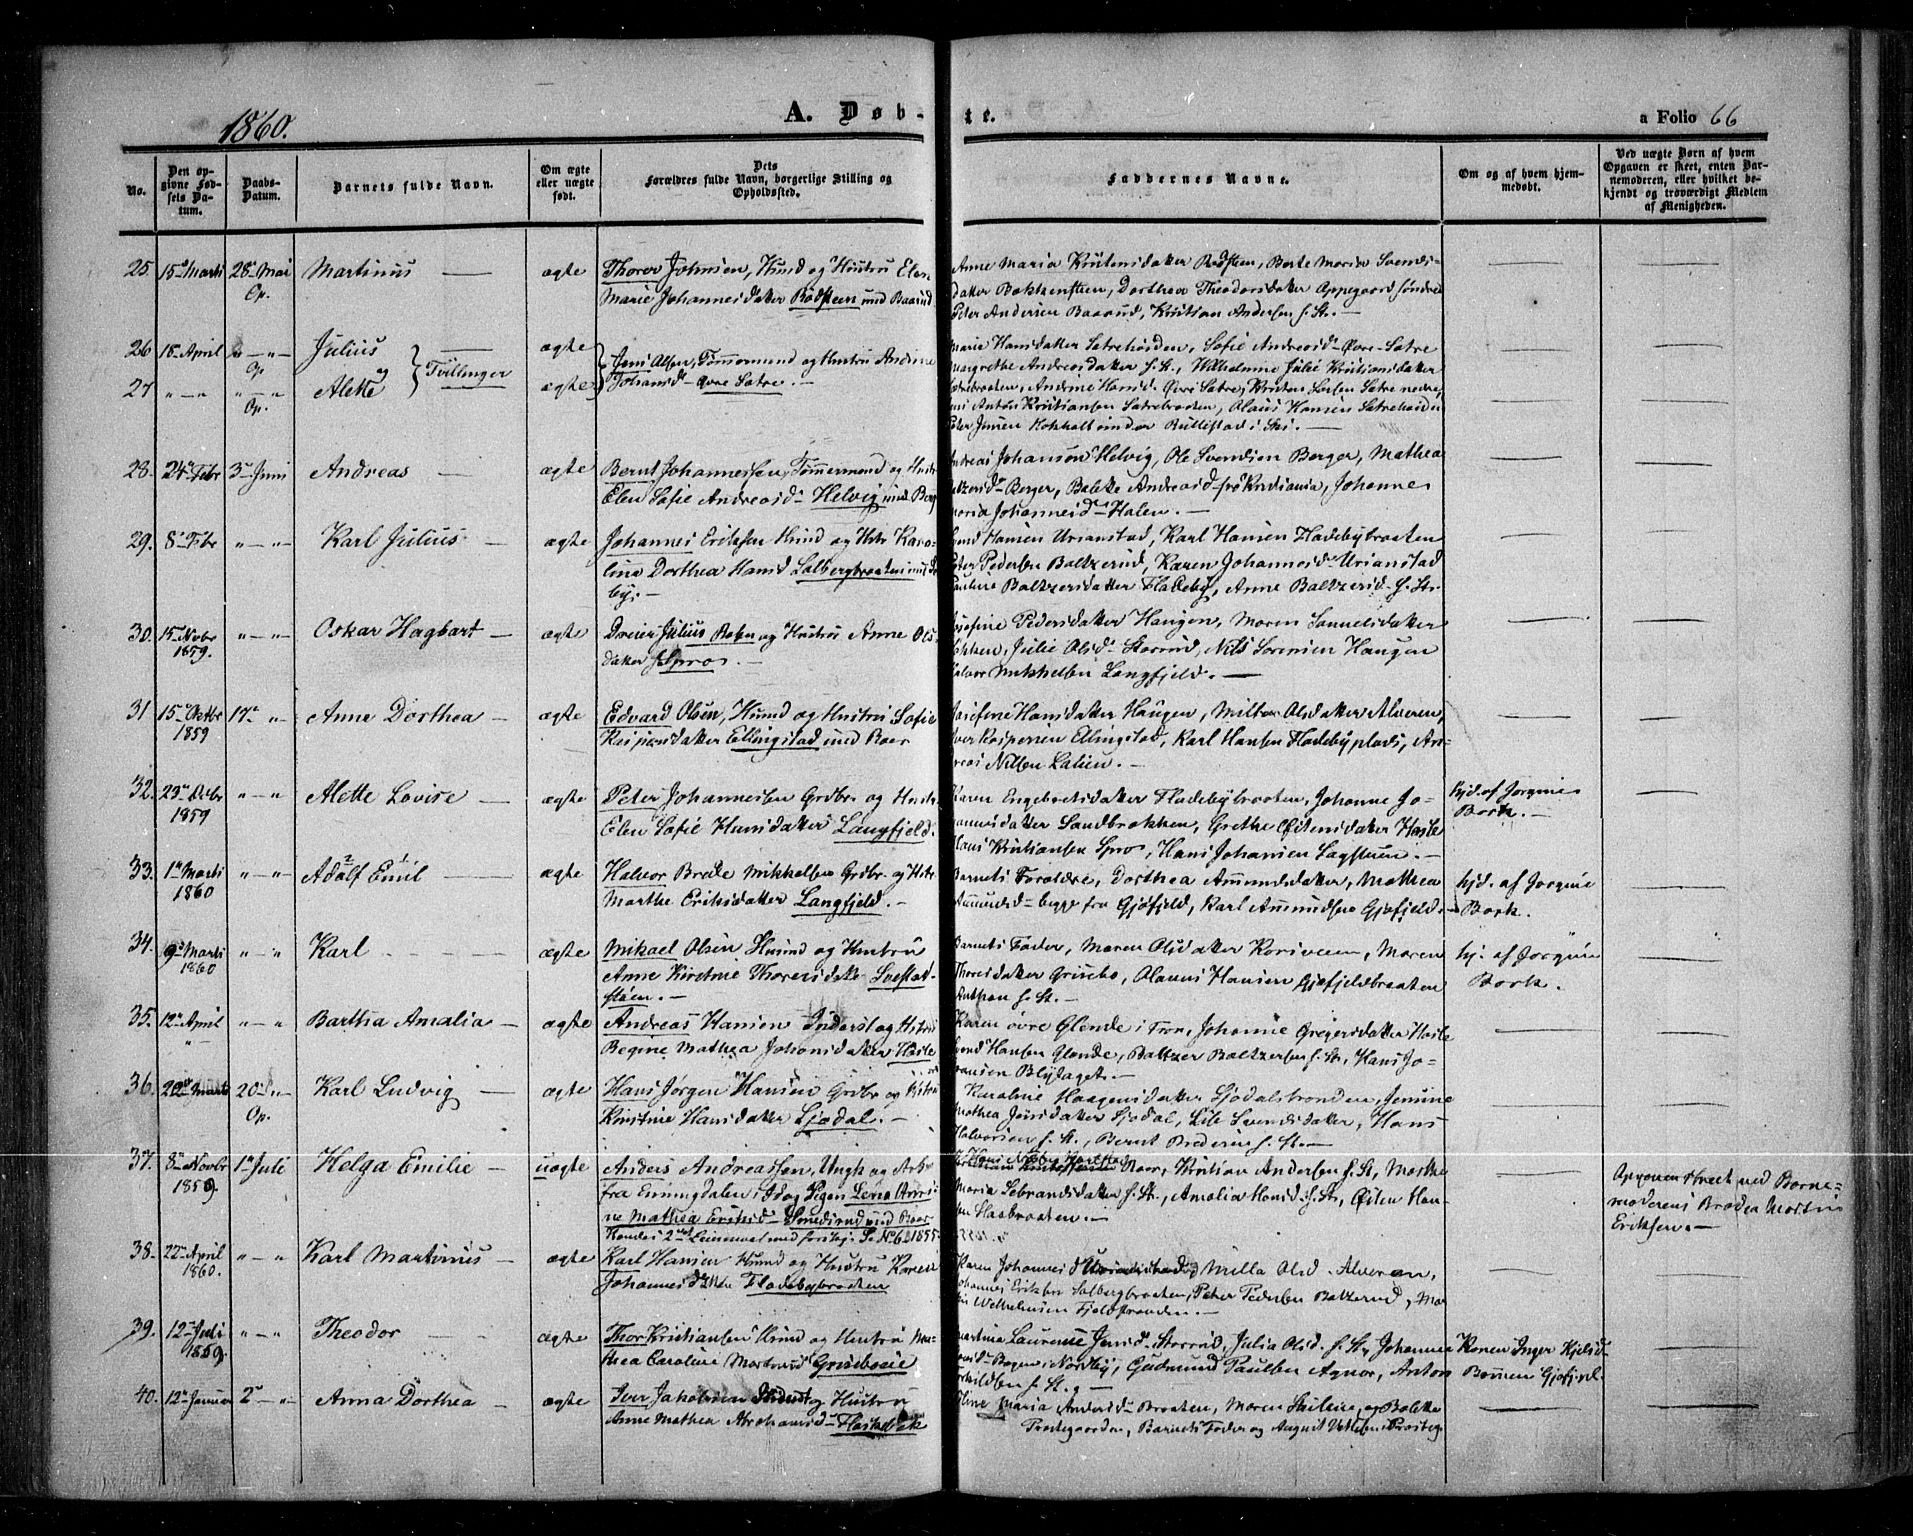 1860.
A. Døb-
te.
a Folio 66
No.
Den op-
givne Fød-
sels Da-
tum.
Daabs-
Datum.
Barnets fulde Navn.
Om ægte
eller uægte
født.
Dets
Forældres fulde Navn, borgerlige Stilling og
Opholdssted.
Faddernes Navne.
Om og af hvem hjem-
medøbt.
Ved uægte Børn af hvem
Opgaven er skeet, enten Bar-
nemoderen, eller hvilket be-
kjendt og troværdigt Medlem
af Menigheden.
25 15de Marti 28de Mai Martinus — ægte Thorer Johnsen, Husmd og Hustru Elen
Op. Marie Johannesdatter Rødsteen und Baarud
Anne Maria Kristensdatter Rødsteen, Berte Maria Svends-
datter Bakkensteen, Dorthea Theodorsdatter Oppegaard søndre
Peter Andersen Baarud, Kristian Andersen s. St. —
26 18 April " — " — Julius ægte
Op. og } Tvillinger Jens Olsen, Tømmermand og Hustru Andrine
27 " — " " — " Alette ægte Johansdtr Øvre Sætre. —
Op.
Marie Hansdatter Sætrehøiden, Sofie Andreasd Øvre Sætre
Margrethe Andreasdatter s. St., Wilhelmine Julie Kristiansdatter
Sætrebraaten, Andrine Hansd. Øvre Sætre, Kristen Larsen Sætre nedre,
Anton Kristiansen Sætrebraaten, Olaus Hansen Sætrehøiden
Peter Jensen i Ski. —
28. 24de Febr 3de Juni Andreas — ægte Bernt Johannessen, Tømmermand og Hustr
Elen Sofie Andreasd. Helvig und Berg
Andreas Johansen Helvig, Ole Svendsen Berger, Mathea
Berger, Bolette Andreasd fra Kristiania, Johanne
Maria Johannesd Halen. —
29. 8de Febr " — " Karl Julius — ægte Johannes Eriksen Husmd og Hstr Karo-
lina Dorthea Hansd Solbergbraaten und
by. —
Hansen Urianstad, Karl Hansen Fladebybraaten
Peter Pedersen Baltzerud, Karen Johannesd Urianstad
Pauline Baltzersdatter Fladeby, Anne Baltzersd s. St.
30. 15 Novbr " — " Oskar Hagbart — ægte Dreier Julius Olsen og Hustru Anne Ols-
1859. datter Spro. —
Josefine Pedersdatter Haugen, Maren Samuelsdatter
Julie Olsd Storrud, Nils Sørensen Haugen
Halvor Mikkelsen Langfjeld. —
31 15de Oktbr 17de " Anne Dorthea — ægte Edvard Olsen, Husmd og Hustru Sofie
1859 Kaspersdatter Ellingstad und Roer
Josefine Hansdatter Haugen, Milla Olsdatter Alveren,
Iver Kaspersen Ellingstad, Karl Hansen Fladebyplads, An-
dreas Nilsen Lahien. —
32. 23de Debr " — " Alette Lovise — ægte Peter Johannesen Grdbr og Hustr
1859 Elen Sofie Hansdatter Langfjeld.
Karen Engebretsdatter Fladebybraaten, Johanne Jo-
hannesdatter Sandbrokken, Grethe Østensdatter Hasle
Hans Kristiansen Spro, Hans Johansen Lagstuen. —
hjd. af Jorgine
Bork. —
33. 1de Marti " — " Adolf Emil — ægte Halvor Brede Mikkelsen Grdbr og Hstr
1860 Marthe Eriksdatter Langfjeld. —
Barnets Forældre, Dorthea Amundsdatter, Mathea
Ammundsd begge fra Gjøfjeld, Karl Amundsen Gjøfjeld.
hjd. af Jorgine
Bork.
34. 9de Marti " — " Karl ægte Mikael Olsen Husmd og Hustru
1860 Anne Kirstine Thoresdatter
støen. —
Barnets Fader, Maren Olsdatter Korsveien, Maren
Thoresdatter Grisebo, Olaus Hansen Gjøfjeldbraaten
s. St. —
hj. af Jorgine
Bork.
35. 12de April " — " Bartha Amalia — ægte Andreas Hansen Inderst og Hstru
Regine Mathea Johansdatter Hasle
Karen øvre Glende i Fron, Johanne Gregersdatter Hasle
Hansen Glende, Baltzer Baltzersen s. St., Hans Jo-
hansen Blylaget. —
36. 20de Marti 20de " Karl Ludvig — ægte Hans Jørgen Hansen Grdbr og Hstru
Op. Kirstine Hansdatter Sjødal. —
Karoline Haagensdatter Sjødalstranden, Jensine
Mathea Jensdatter Sjødal, Svendsdatter, Hans
Halvorsen s. St., Bernt Bredesen s. St. —
37. 8de Novbr 1de Juli Helga Emilie — uægte Anders Andreassen, Ungk og Arb
1859. fra Enningdalen, Id og Pigen Lena Anni-
ne Mathea Eriksd Smedsrud und Roer
Mathe
Maria s. St., Amalia Hansd. s. St., Østen Han-
sen Haabraaten. —
Opgaven skeet ved Barne-
moderens Broder Martin
Eriksen. —
38. 22de April " — " Karl Martinus — ægte Karl Hansen Husmd og Hustru Karen
1860. Johannesdatter Fladebybraaten
Karen Johannesd Milla Olsd Alveren,
Johannes Eriksen Solbergbraaten, Peter Pedersen Baltzerud, Mar-
Wilhelmsen Fjeldstranden. —
39. 12te Juli " — " Theodor — ægte Thor Kristiansen Husmd og Hustru Ma-
1859. thea Caroline Grisebotie
Martina Laurense Jensd Storrud, Julia Olsd. s. St., Johanne
i Nordby, Gudmund Paulsen Agnor, Anton
s. St. —
Karen Inger
Gjøfjel.
40. 12de Januar 2de — " Anna Dorthea — ægte Iver Jakobsen Inderst og Hustru
Anne Mathea Abrahamsd
Maria Andersd Braaten, Maren og Bolette
Præstegaarden, Barnets Fader og August